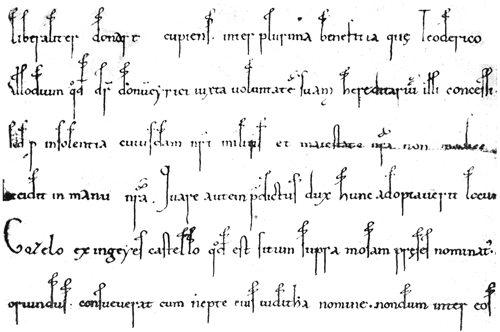 liberaliter donaret cupiens. inter plurima benefitia quę Teoderico
Allodium qd dr uoluntatē suam hereditariū illi concessi.
p insolentia cuiusdam nr̄i militis et maiestate nr̄a non
in manū nr̄a. Quare autem p̄dictus dux hunc adoptauerit locū
Gozelo ex ingeyes castello qd est situm supra mosam pręses nominat'
oriundus. consueuerat cum nepte eius uiditha nomine. nondum inter eos